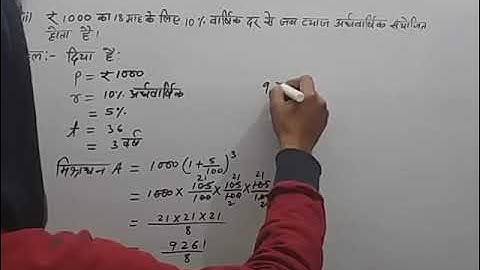 ii) ₹ 1000 का 18 माह के लिए 10% वार्षिक दर से जब ब्याज अर्धवार्षिक संयोजित
होता है।
हल:- दिया है:
P = ₹ 1000
r = 10% अर्धवार्षिक
= 5%
t = 36
= 3 वर्ष
मिश्रधन A = 1000 (1 + 5/100)³
= 1000 × 105/100 × 105/100 × 105/100
21 21 21
2 2
= 21 × 21 × 21 / 8
= 9261 / 8